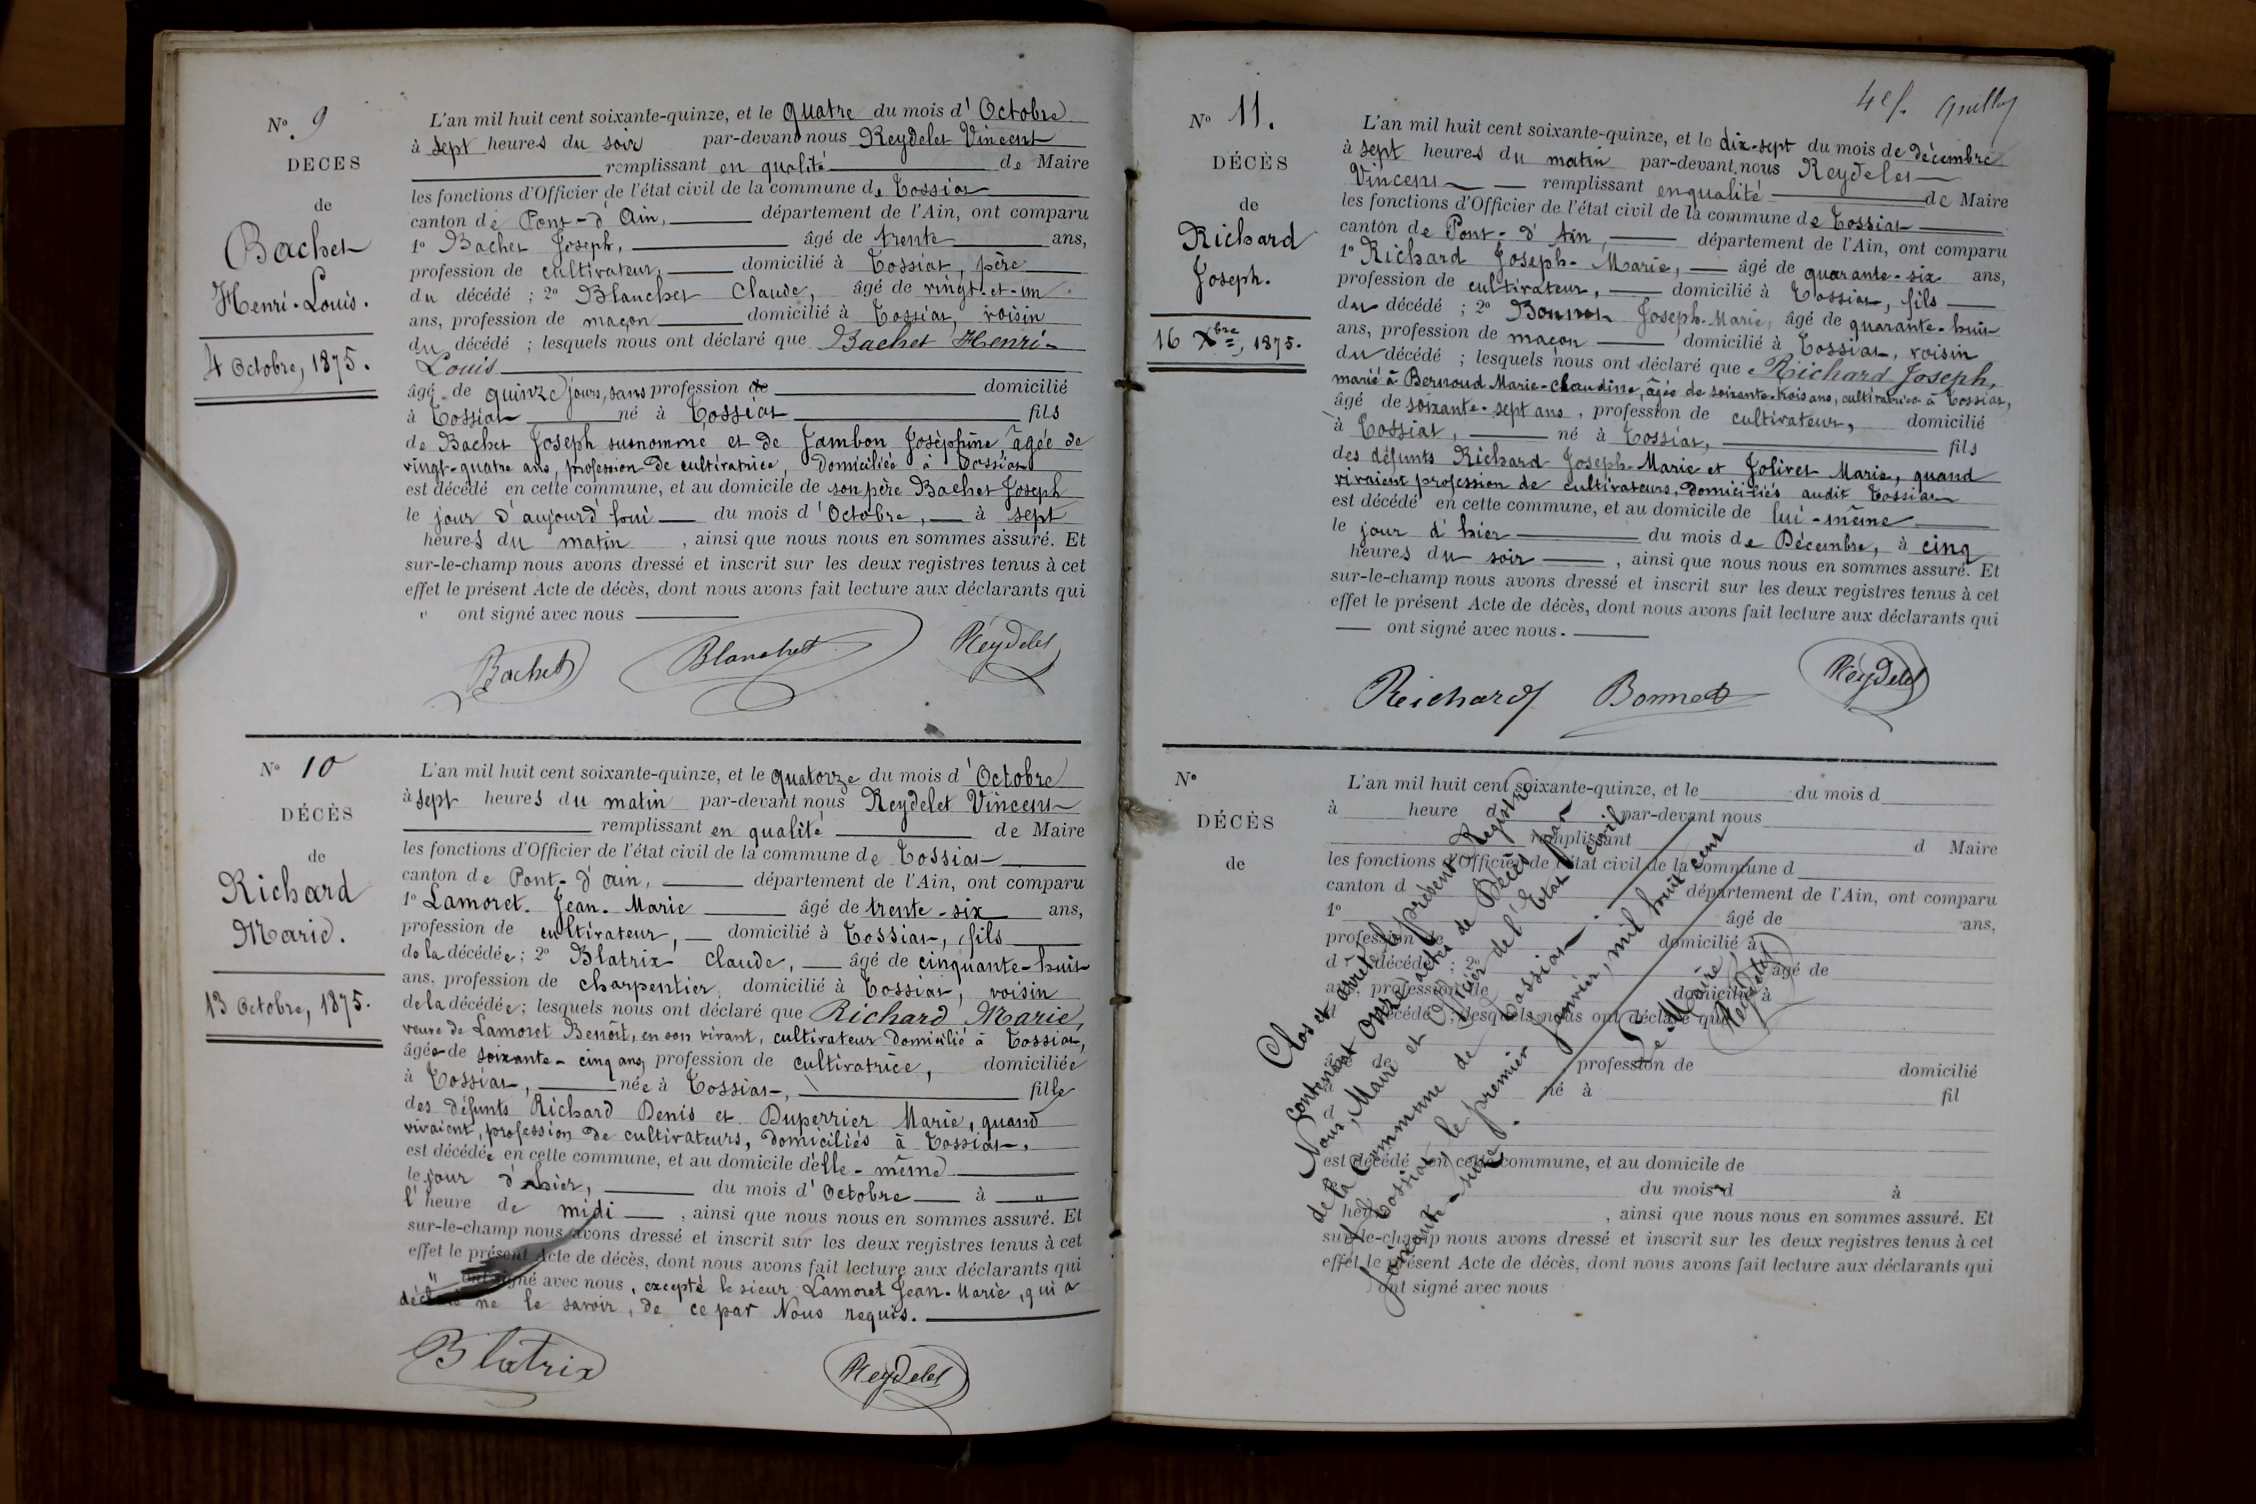 N° 9
DECES
de
Bachet
Henri-Louis.
4 Octobre, 1875.
L'an mil huit cent soixante-quinze, et le quatre du mois d'Octobre
à sept heures du soir par-devant nous Reydelet Vincent
remplissant en qualité de Maire
les fonctions d'Officier de l'état civil de la commune de Tossiat
canton de Pont-d'Ain, département de l'Ain, ont comparu
1° Bachet Joseph, âgé de trente ans,
profession de cultivateur, domicilié à Tossiat, père
du décédé ; 2° Blanchet Claude, âgé de vingt-et-un
ans, profession de maçon domicilié à Tossiat, voisin
du décédé ; lesquels nous ont déclaré que Bachet Henri-
Louis
âgé de quinze jours, sans profession de domicilié
à Tossiat né à Tossiat fils
de Bachet Joseph susnommé et de Jambon Joséphine, âgée de
vingt-quatre ans, profession de cultivatrice, domiciliée à Tossiat
est décédé en cette commune, et au domicile de son père Bachet Joseph
le jour d'aujourd'hui du mois d'Octobre, à sept
heures du matin , ainsi que nous nous en sommes assuré. Et
sur-le-champ nous avons dressé et inscrit sur les deux registres tenus à cet
effet le présent Acte de décès, dont nous avons fait lecture aux déclarants qui
" ont signé avec nous
Bachet Blanchet Reydelet
N° 10
DÉCÈS
de
Richard
Marie.
13 Octobre, 1875.
L'an mil huit cent soixante-quinze, et le quatorze du mois d'Octobre
à sept heures du matin par-devant nous Reydelet Vincent
remplissant en qualité de Maire
les fonctions d'Officier de l'état civil de la commune de Tossiat
canton de Pont-d'ain, département de l'Ain, ont comparu
1° Lamoret. Jean-Marie âgé de trente-six ans,
profession de cultivateur, domicilié à Tossiat, fils
de la décédée ; 2° Blatrix Claude, âgé de cinquante-huit
ans, profession de charpentier, domicilié à Tossiat, voisin
de la décédée ; lesquels nous ont déclaré que Richard Marie,
veuve de Lamoret Benoît, en son vivant, cultivateur domicilié à Tossiat,
âgée de soixante-cinq ans, profession de cultivatrice, domiciliée
à Tossiat, née à Tossiat, fille
des défunts Richard Denis et Duperrier Marie, quand
vivaient, profession de cultivateurs, domiciliés à Tossiat,
est décédée en cette commune, et au domicile d'elle-même
le jour d'hier, du mois d'Octobre à "
l'heure de midi , ainsi que nous nous en sommes assuré. Et
sur-le-champ nous avons dressé et inscrit sur les deux registres tenus à cet
effet le présent Acte de décès, dont nous avons fait lecture aux déclarants qui
" ont signé avec nous, excepté le sieur Lamoret Jean-Marie, qui a
déclaré ne le savoir, de ce par Nous requis.
Blatrix Reydelet
4e f.
N° 11.
DÉCÈS
de
Richard
Joseph.
16 Xbre, 1875.
L'an mil huit cent soixante-quinze, et le dix-sept du mois de décembre
à sept heures du matin par-devant nous Reydelet
Vincent remplissant en qualité de Maire
les fonctions d'Officier de l'état civil de la commune de Tossiat
canton de Pont-d'Ain, département de l'Ain, ont comparu
1° Richard Joseph-Marie, âgé de quarante-six ans,
profession de cultivateur, domicilié à Tossiat, fils
du décédé ; 2° Bonnet Joseph-Marie, âgé de quarante-huit
ans, profession de maçon domicilié à Tossiat, voisin
du décédé ; lesquels nous ont déclaré que Richard Joseph,
marié à Bernoud Marie-Claudine, âgée de soixante-trois ans, cultivatrice à Tossiat,
âgé de soixante-sept ans, profession de cultivateur, domicilié
à Tossiat, né à Tossiat, fils
des défunts Richard Joseph-Marie et Jolivet Marie, quand
vivaient profession de cultivateurs, domiciliés audit Tossiat
est décédé en cette commune, et au domicile de lui-même
le jour d'hier du mois de Décembre, à cinq
heures du soir , ainsi que nous nous en sommes assuré. Et
sur-le-champ nous avons dressé et inscrit sur les deux registres tenus à cet
effet le présent Acte de décès, dont nous avons fait lecture aux déclarants qui
ont signé avec nous.
Richard Bonnet Reydelet
N°
DÉCÈS
de
L'an mil huit cent soixante-quinze, et le du mois d
à heure d par-devant nous
remplissant d Maire
les fonctions d'Officier de l'état civil de la commune d
canton d département de l'Ain, ont comparu
1° âgé de ans,
profession de domicilié à
d décédé ; 2° âgé de
ans, profession de domicilié à
d décédé ; lesquels nous ont déclaré que
âgé de profession de domicilié
à né à fil
d
est décédé en cette commune, et au domicile de
du mois d à
heure , ainsi que nous nous en sommes assuré. Et
sur-le-champ nous avons dressé et inscrit sur les deux registres tenus à cet
effet le présent Acte de décès, dont nous avons fait lecture aux déclarants qui
ont signé avec nous
Clos et arrêté le présent Registre
Contenant onze actes de Décès par
Nous, Maire et Officier de l'Etat civil
de la Commune de Tossiat
à Tossiat, le premier Janvier, mil huit cent
soixante-seize.
Le Maire,
Reydelet